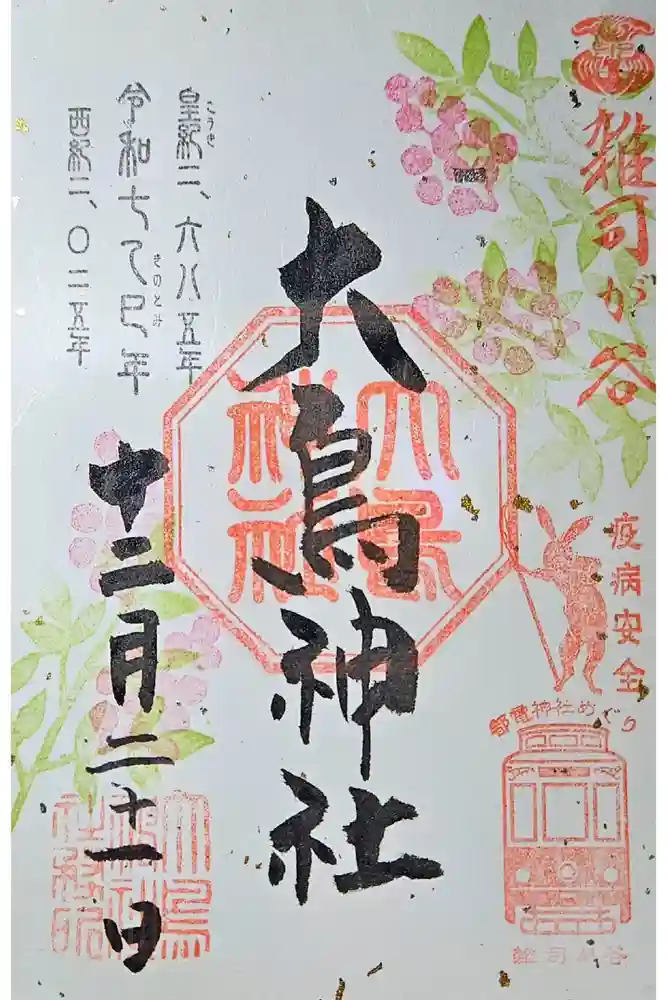 雑司が谷
疫病安全
都電神社めぐり
雑司が谷
大鳥神社
大鳥神社
皇紀二、六八五年
こうき
令和七乙巳年
きのとみ
西紀二、〇二五年
十二月二十一日
大鳥神社社務所